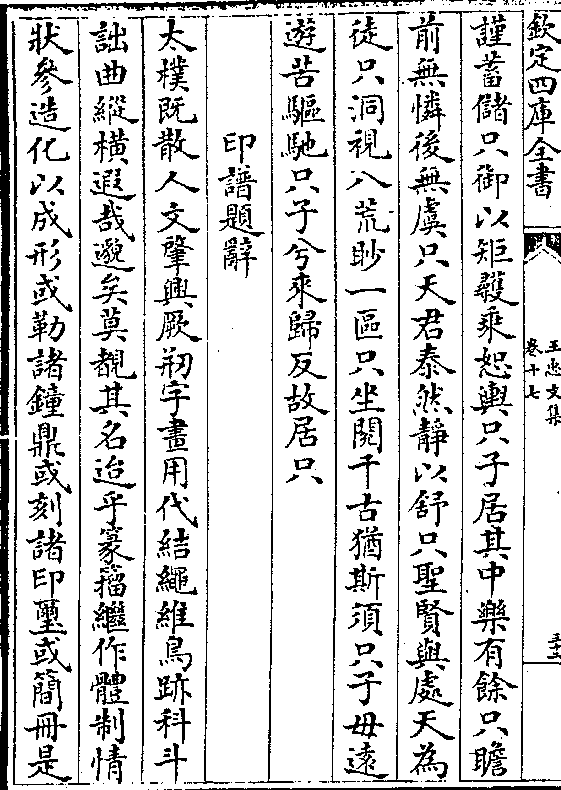 欽定四庫全書
王忠文集
卷十七
謹蓄儲只御以矩矱乘恕輿只子居其中樂有餘只瞻
前無憐後無虞只天君泰然靜以舒只聖賢與處天為
徒只洞視八荒眇一區只坐閱千古猶斯須只子毋遠
遊苦驅馳只子兮來歸反故居只
印譜題辭
太樸既散人文肇興厥初字畫用代結繩維鳥跡科斗
詘曲縱橫遐哉邈矣莫覩其名迨乎篆籀繼作體制情
狀參造化以成形或勒諸鐘鼎或刻諸印璽或簡冊是